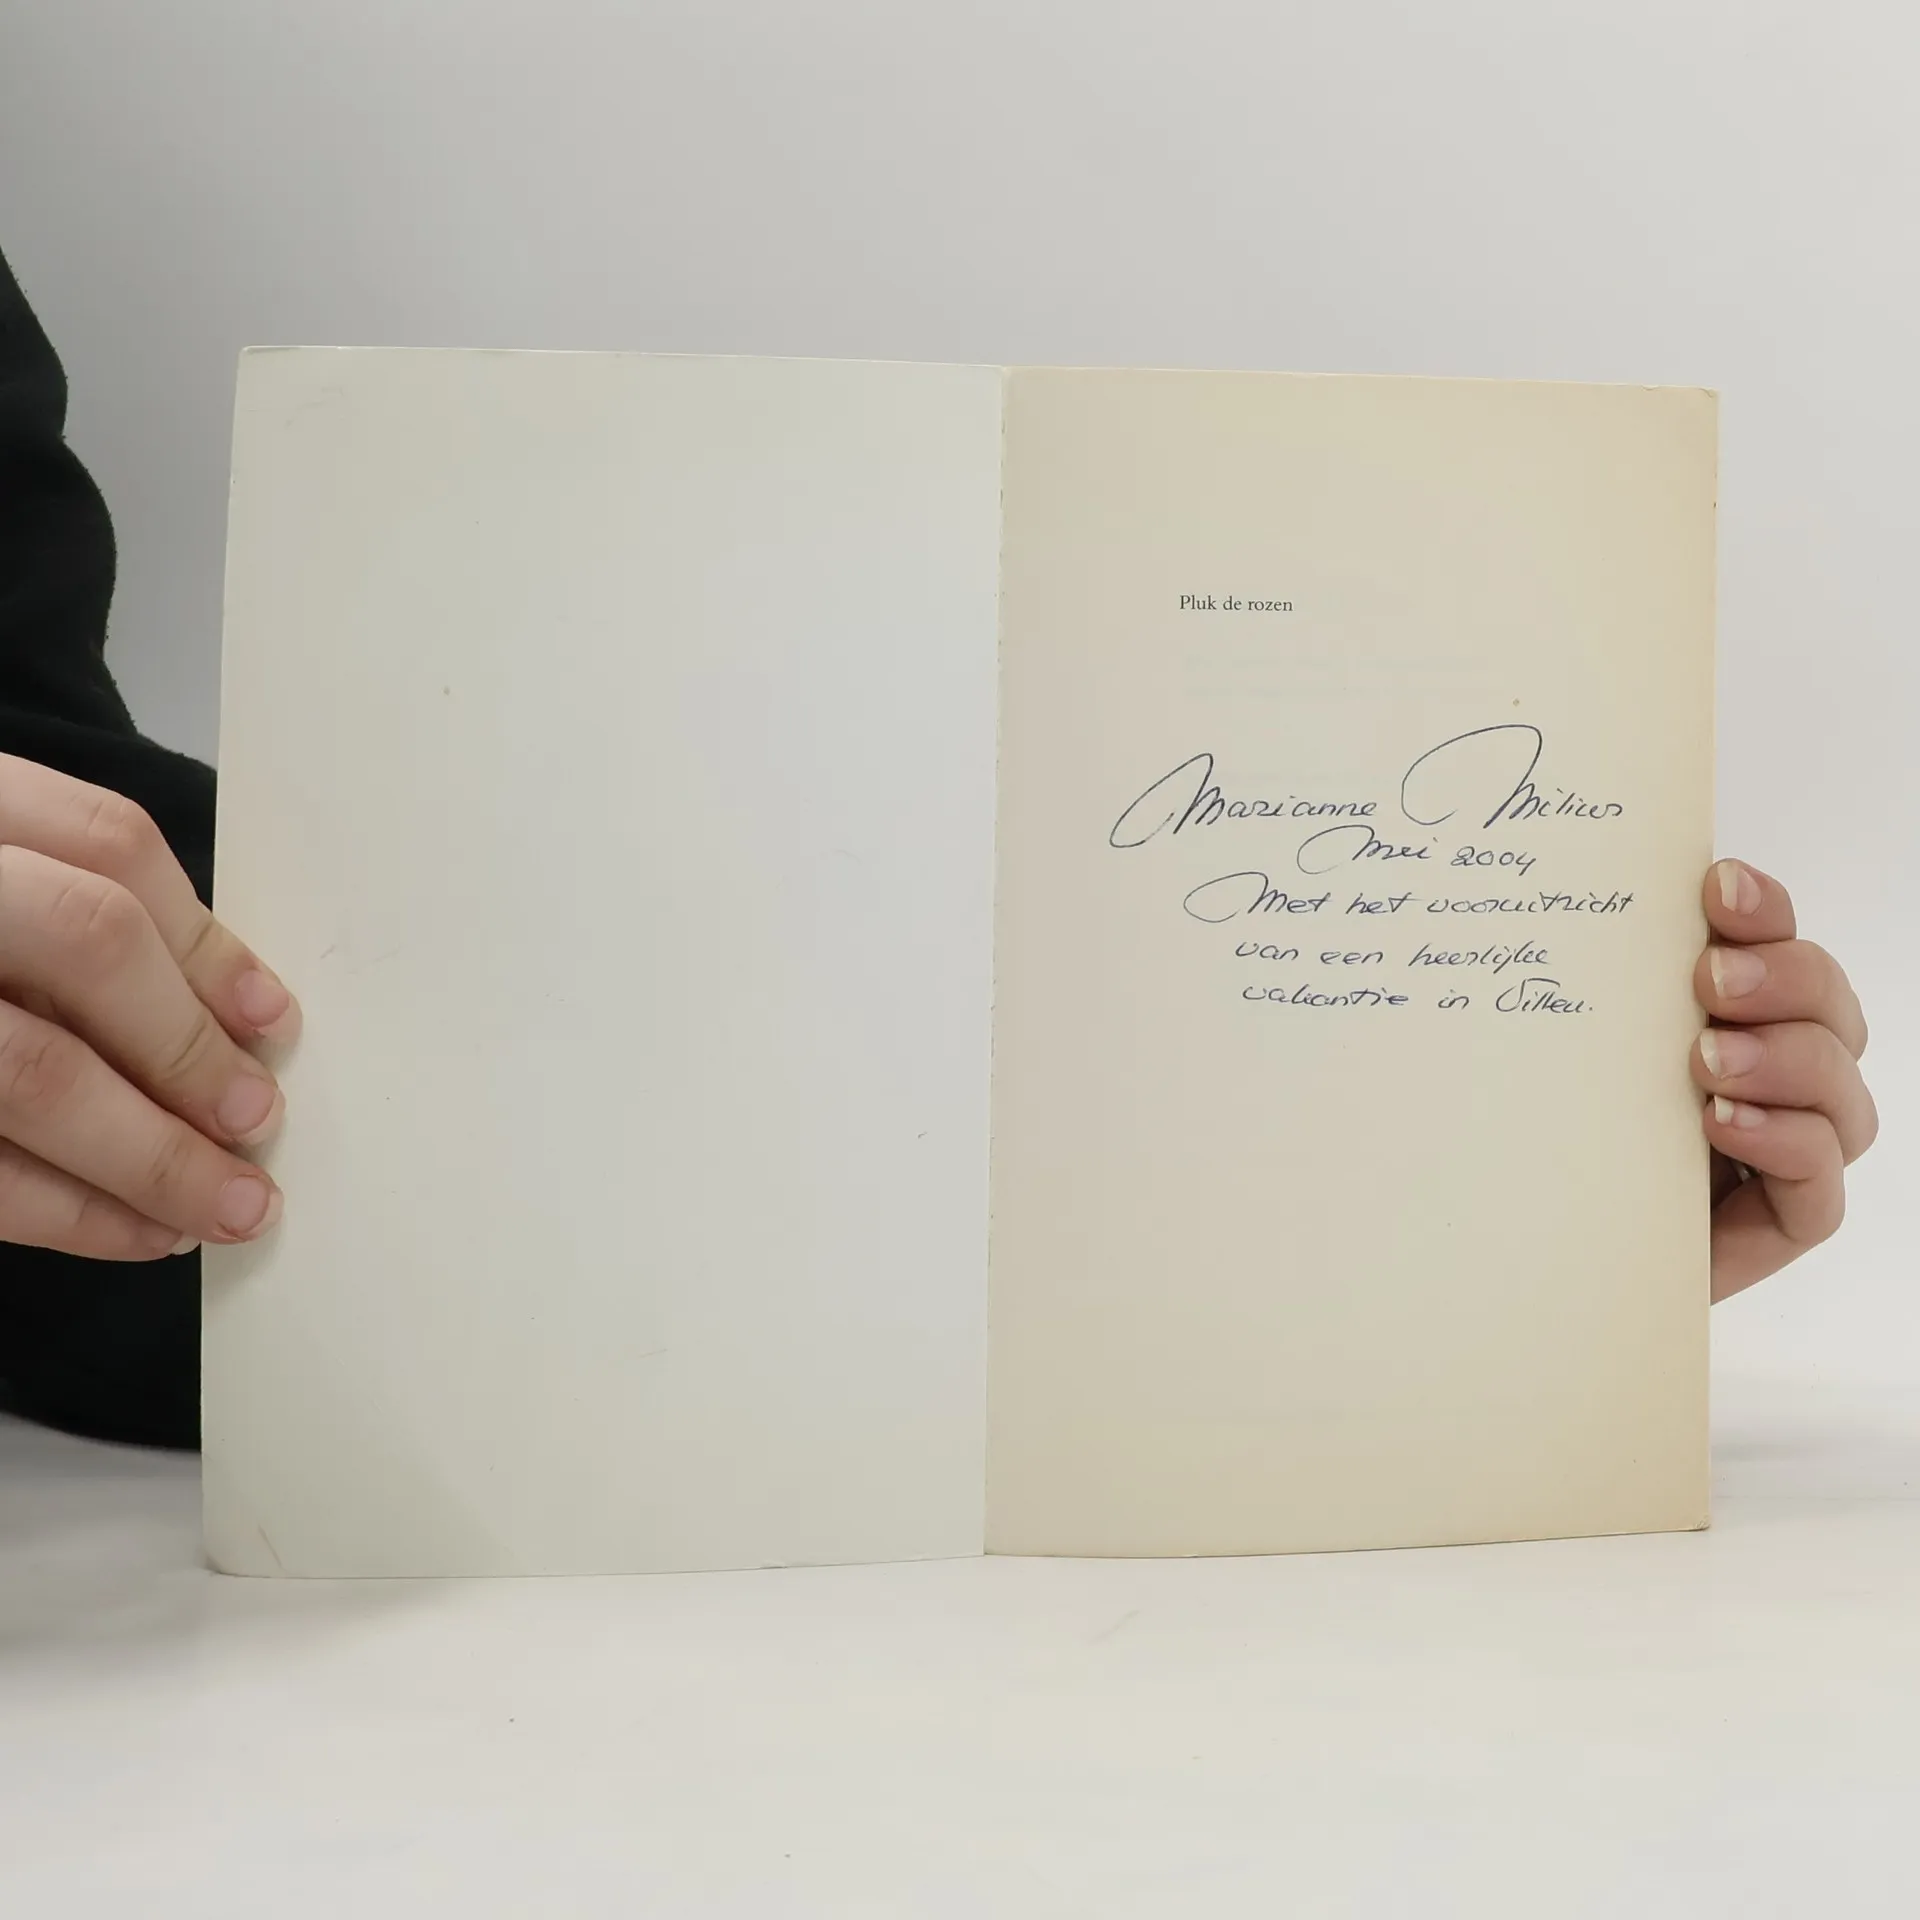 Pluk de rozen
Marianne Milius
Mei 2004
Met het vooruitzicht
van een heerlijke
vakantie in